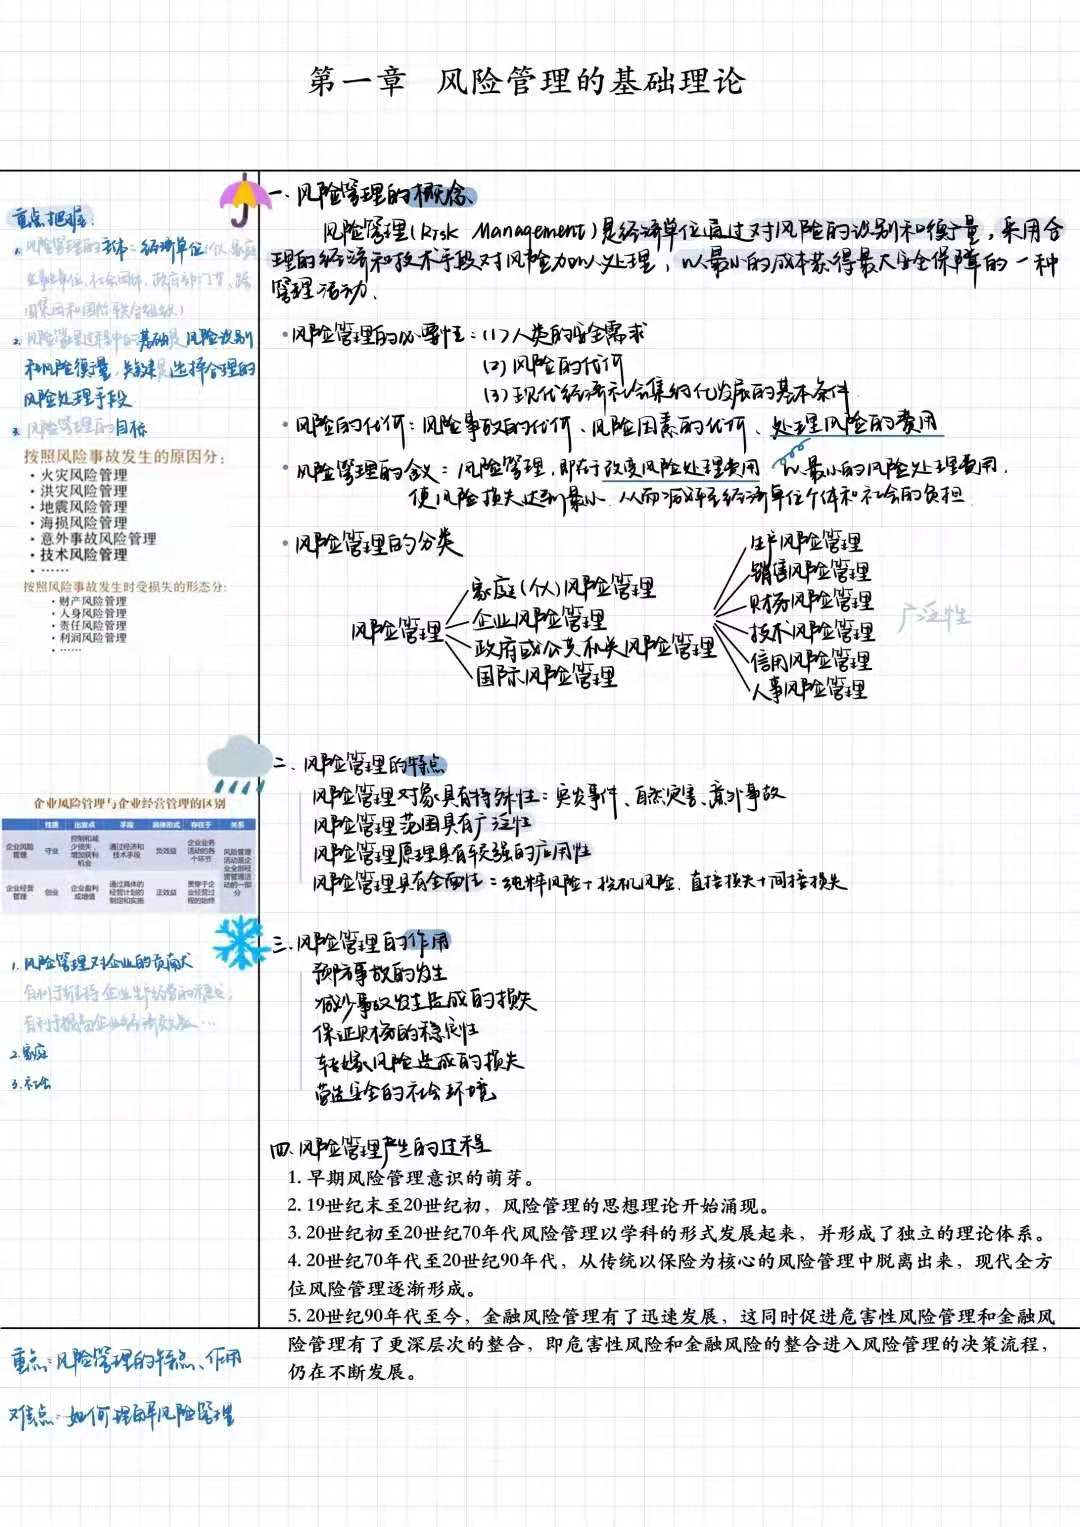 第一章 风险管理的基础理论
一.风险管理的概念
风险管理(Risk Management)是经济单位通过对风险的识别和衡量,采用合
理的经济和技术手段对风险加以处理,以最小的成本获得最大安全保障的一种
管理活动.
·风险管理的必要性:(1)人类的安全需求
(2)风险的代价
(3)现代经济社会集约化发展的基本条件
·风险的代价:风险事故的代价、风险因素的代价、处理风险的费用
·风险管理的含义:风险管理,即在于改变风险处理费用 以最小的风险处理费用,
使风险损失达到最小.从而减轻经济单位个体和社会的负担.
·风险管理的分类
风险管理
家庭(个人)风险管理
企业风险管理
政府或公共机关风险管理
国际风险管理
生产风险管理
销售风险管理
财务风险管理
技术风险管理
信用风险管理
人事风险管理
广泛性
二.风险管理的特点
风险管理对象具有特殊性:突发事件、自然灾害、意外事故
风险管理范围具有广泛性
风险管理原理具有较强的应用性
风险管理具有全面性:纯粹风险+投机风险.直接损失+间接损失
三.风险管理的作用
预防事故的发生
减少事故发生造成的损失
保证财务的稳定性
转嫁风险造成的损失
营造安全的社会环境
四.风险管理产生的过程
1. 早期风险管理意识的萌芽。
2. 19世纪末至20世纪初，风险管理的思想理论开始涌现。
3. 20世纪初至20世纪70年代风险管理以学科的形式发展起来，并形成了独立的理论体系。
4. 20世纪70年代至20世纪90年代，从传统以保险为核心的风险管理中脱离出来，现代全方
位风险管理逐渐形成。
5. 20世纪90年代至今，金融风险管理有了迅速发展，这同时促进危害性风险管理和金融风
险管理有了更深层次的整合，即危害性风险和金融风险的整合进入风险管理的决策流程，
仍在不断发展。
重点把握:
1.风险管理的主体:经济单位(个人.家庭
企业单位,社会团体,政府部门等、跨
国集团和国际联合组织)
2.风险管理过程中的基础是风险识别
和风险衡量,关键是选择合理的
风险处理手段
3.风险管理的目标
按照风险事故发生的原因分：
· 火灾风险管理
· 洪灾风险管理
· 地震风险管理
· 海损风险管理
· 意外事故风险管理
· 技术风险管理
· ……
按照风险事故发生时受损失的形态分：
· 财产风险管理
· 人身风险管理
· 责任风险管理
· 利润风险管理
· ……
企业风险管理与企业经营管理的区别
性质 出发点 手段 具体形式 存在于 关系
企业风险管理 守业 控制和减少损失，增加获利机会 通过经济和技术手段 负效益 企业业务活动的各个环节 风险管理活动是企业全部经营管理活动的一部分
企业经营管理 创业 企业盈利或增值 通过具体的经营计划的制定和实施 正效益 贯穿于企业经营过程的始终
1.风险管理对企业的贡献大
有利于维持企业生产经营的稳定;
有利于提高企业经济效益…
2.家庭
3.社会
重点:风险管理的特点、作用
难点:如何理解风险管理